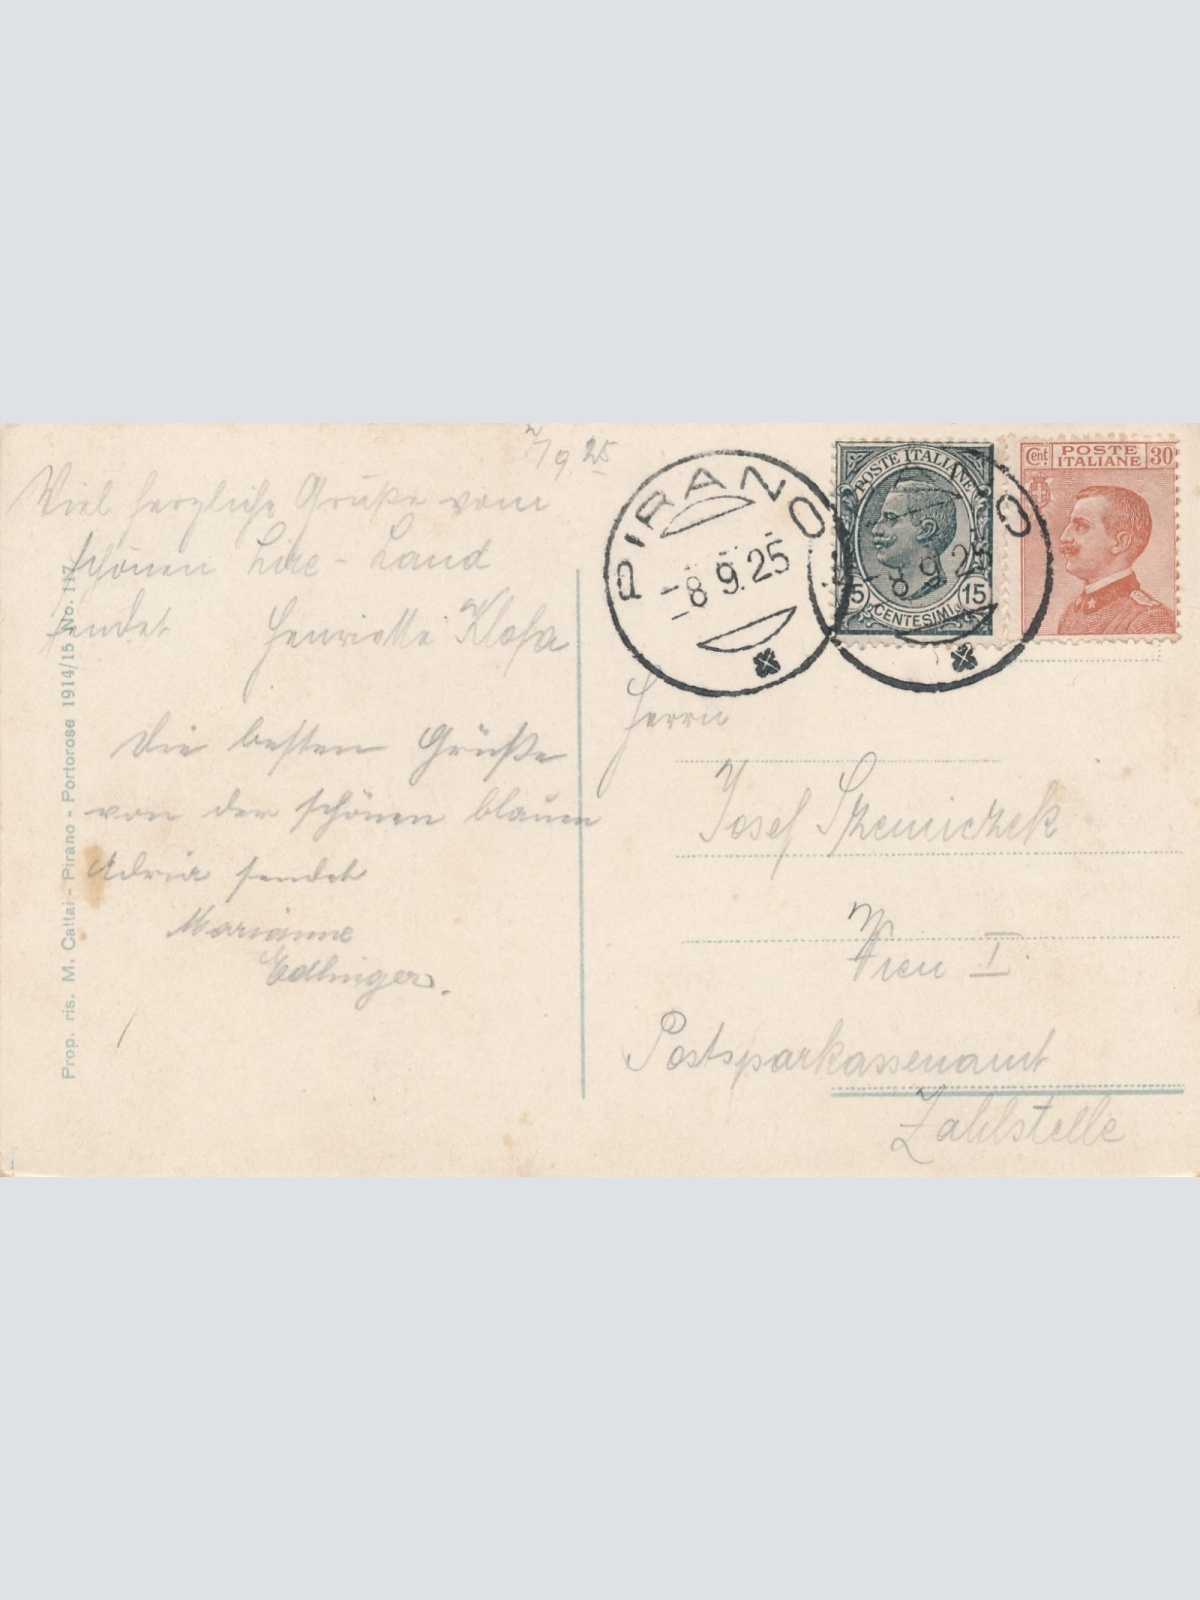 7/9 25
Viel herzliche Grüße vom
schönen Lire-Land
sendet Henriette Klofa
Die besten Grüße
von der schönen blauen
Adria sendet
Marianne
Edlinger.
Prop. ris. M. Cattai - Pirano - Portorose 1914/15 No. 117
PIRANO
-8 9.25
8 9 25
POSTE ITALIANE
15 15
CENTESIMI
Cent. POSTE ITALIANE 30
Herrn
Josef
Wien I.
Postsparkassenamt
Zahlstelle